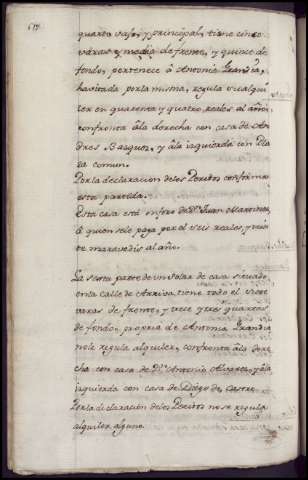 quarto vajo, y principal, tiene cinco
varas y media de frente, y quince de
fondo, pertenece â Antonia Grandia,
havitada por la misma, regula su alqui
ler en quarenta y quatro reales al año,
confronta âla derecha con casa de An
dres Basquez, y âla izquierda con Pla
za comun.
Por la declaracion delos Peritos conforma
esta partida.
Esta casa está en foro de Dn. Juan Martinez,
â quien sele paga por el seis reales y treze
te maravedis al año.
La sexta parte de un solar de casa situado
enla calle de Arriva, tiene todo el siete
varas de frente, y trece y tres quartos
de fondo, propria de Antonia Grandia
nole regula alquiler, confronta âla dere
cha con casa de Dn. Antonio Alvarez, y âla
izquierda con casa de Diego de Castro.
Por la declaracion delos Peritos nose regula
alquiler alguno.